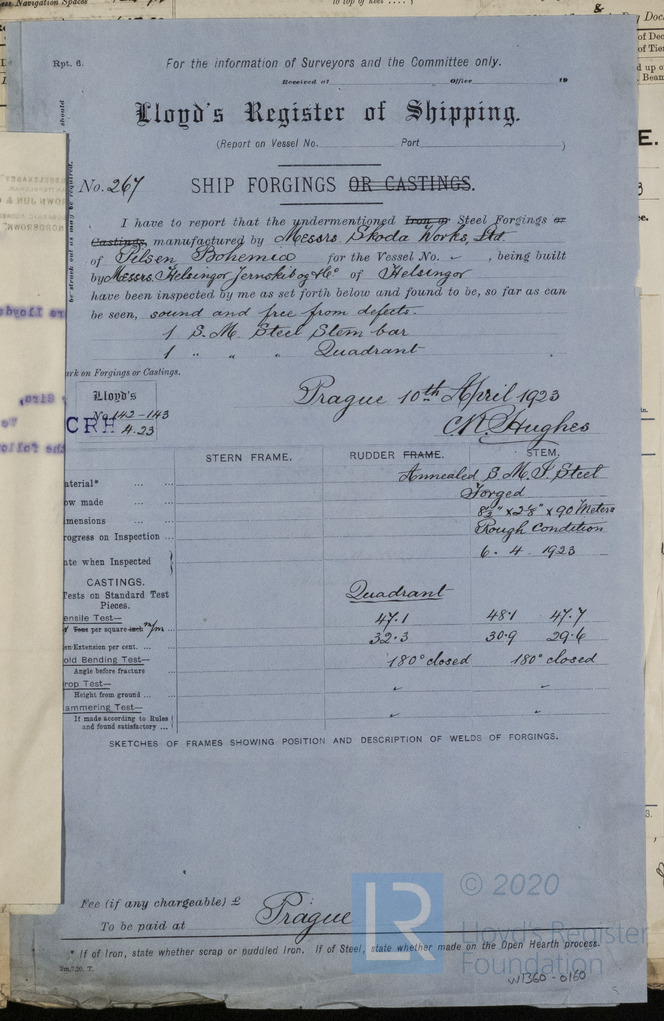 Rpt. 6.
For the information of Surveyors and the Committee only.
Received at Office 19
Lloyd's Register of Shipping.
(Report on Vessel No. Port )
No. 267 SHIP FORGINGS OR CASTINGS.
I have to report that the undermentioned Iron or Steel Forgings or
Castings, manufactured by Messrs Skoda Works, Ltd
of Pilsen Bohemia for the Vessel No. , being built
by Messrs. Helsingor Jernskibog & Co of Helsingor
have been inspected by me as set forth below and found to be, so far as can
be seen, sound and free from defects.
1 S. M. Steel Stem bar
1 " " " Quadrant
ark on Forgings or Castings.
Lloyd's
No 142-143
CRH 4.23
Prague 10th April 1923
C.R. Hughes
STERN FRAME. RUDDER FRAME. STEM.
aterial* Annealed S. M. I. Steel
ow made Forged
imensions 90 Meters
rogress on Inspection Rough Condition
ate when Inspected 6. 4. 1923
CASTINGS.
Tests on Standard Test
Pieces. Quadrant
ensile Test— 47.1 48.1 47.7
Tons per square inch m/m
Extension per cent. 32.3 30.9 29.6
old Bending Test— 180° closed 180° closed
Angle before fracture
rop Test—
Height from ground
ammering Test—
If made according to Rules
and found satisfactory
SKETCHES OF FRAMES SHOWING POSITION AND DESCRIPTION OF WELDS OF FORGINGS.
Fee (if any chargeable) £
To be paid at Prague
* If of Iron, state whether scrap or puddled Iron. If of Steel, state whether made on the Open Hearth process.
2m,7,20. T.
LR
© 2020
Lloyd's Register
Foundation
W1360-0160